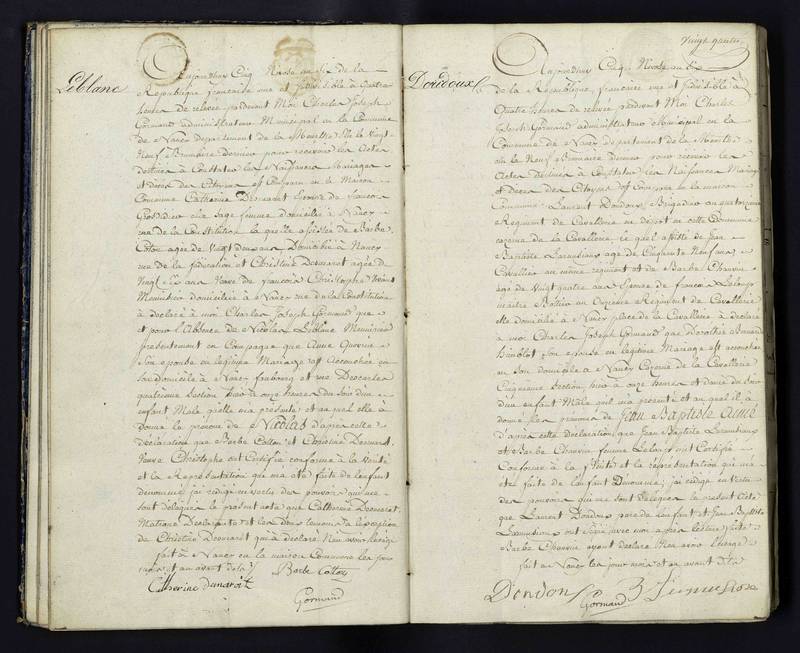 Leblanc
Aujourdhui Cinq Nivose an Six de la
République française une et Indivisible à quatre
heures de relevée pardevant Moi Charles Joseph
Gormand administrateur Municipal en la Commune
de Nancy departement de la Meurthe Elu le Vingt
Neuf Brumaire dernier pour recevoir les Actes
destinés à Constater les Naissances Mariages
et décès des Citoyens est Comparu en la Maison
Commune Catherine femme de francois
sage femme domiciliée à Nancy
rue de la Constitution la quelle assistée de Barbe
Cotton agée de Vingt deux ans Domiciliée à Nancy
rue de la fédération et Christine agée de
Vingt Six ans Veuve de francois Christophe Vivant
Menuisier domiciliée à Nancy rue de la Constitution
à déclaré à moi Charles Joseph Gormand que
et pour l'Absence de Nicolas Leblanc Menuisier
presentement en Campagne que Anne
Son epouse en legitime Mariage est Accouchée en
son domicile à Nancy faubourg et rue Descartes
quatrieme Section hier à onze heures du Soir d'un
enfant Male qu'elle m'a presenté et au quel elle à
donné le prenom de Nicolas d'apres cette
déclaration que Barbe Cotton et Christine
Veuve Christophe ont Certifiée conforme à la Verité
et la Representation qui m'a été faite de l'enfant
denommé j'ai redigé en vertu des pouvoirs qui me
sont délégués le présent acte que Catherine
Matrone Declarante et les deux temoins à l'exception
de Christine à déclaré N'en avoir l'usage
fait à Nancy en la maison Commune les jour
mois et an avant dits
Barbe Cotton
Catherine
Gormand
Vingt quatre
Dordoux
Aujourdhui Cinq Nivose an Six
de la République française une et Indivisible à
quatre heures de relevée pardevant Moi Charles
Joseph Gormand administrateur Municipal en la
Commune de Nancy departement de la Meurthe
élu le Neuf Brumaire dernier pour recevoir les
Actes destinés à Constater les Naissances Mariages
et Deces des Citoyens est Comparu en la maison
Commune Laurent Brigadier au quatorzieme
Regiment de Cavallerie en depot en cette Commune
caserne de la Cavallerie le quel assisté de Jean
Baptiste agé de Cinquante Neuf ans
Cavallier au même regiment et de Barbe Chauvin
agé de Vingt quatre ans Epouse de francois Leloup
maitre Bottier au Onzieme Regiment de Cavallerie
elle domiciliée à Nancy place de la Cavallerie à déclaré
à moi Charles Joseph Gormand que Dorothée
Son épouse en legitime Mariage est accouchée
en son domicile à Nancy Caserne de la Cavallerie
Cinquieme Section hier à onze heures et demie du Soir
d'un enfant Male qu'il m'a presenté et au quel il à
donné les prenoms de Jean Baptiste Aimé
d'apres cette Declaration que Jean Baptiste
et Barbe Chauvin femme Leloup ont Certifiée
Conforme à la Verité et la représentation qui m'a
été faite de l'enfant Denommé j'ai redigé en Vertu
des pouvoirs qui me sont Délégués le present Acte
que Laurent pere de l'enfant et Jean Baptiste
ont Signé avec moi apres lecture faite
Barbe Chauvin ayant declaré N'en avoir l'usage
fait à Nancy les jour mois et an avant dits
Gormand